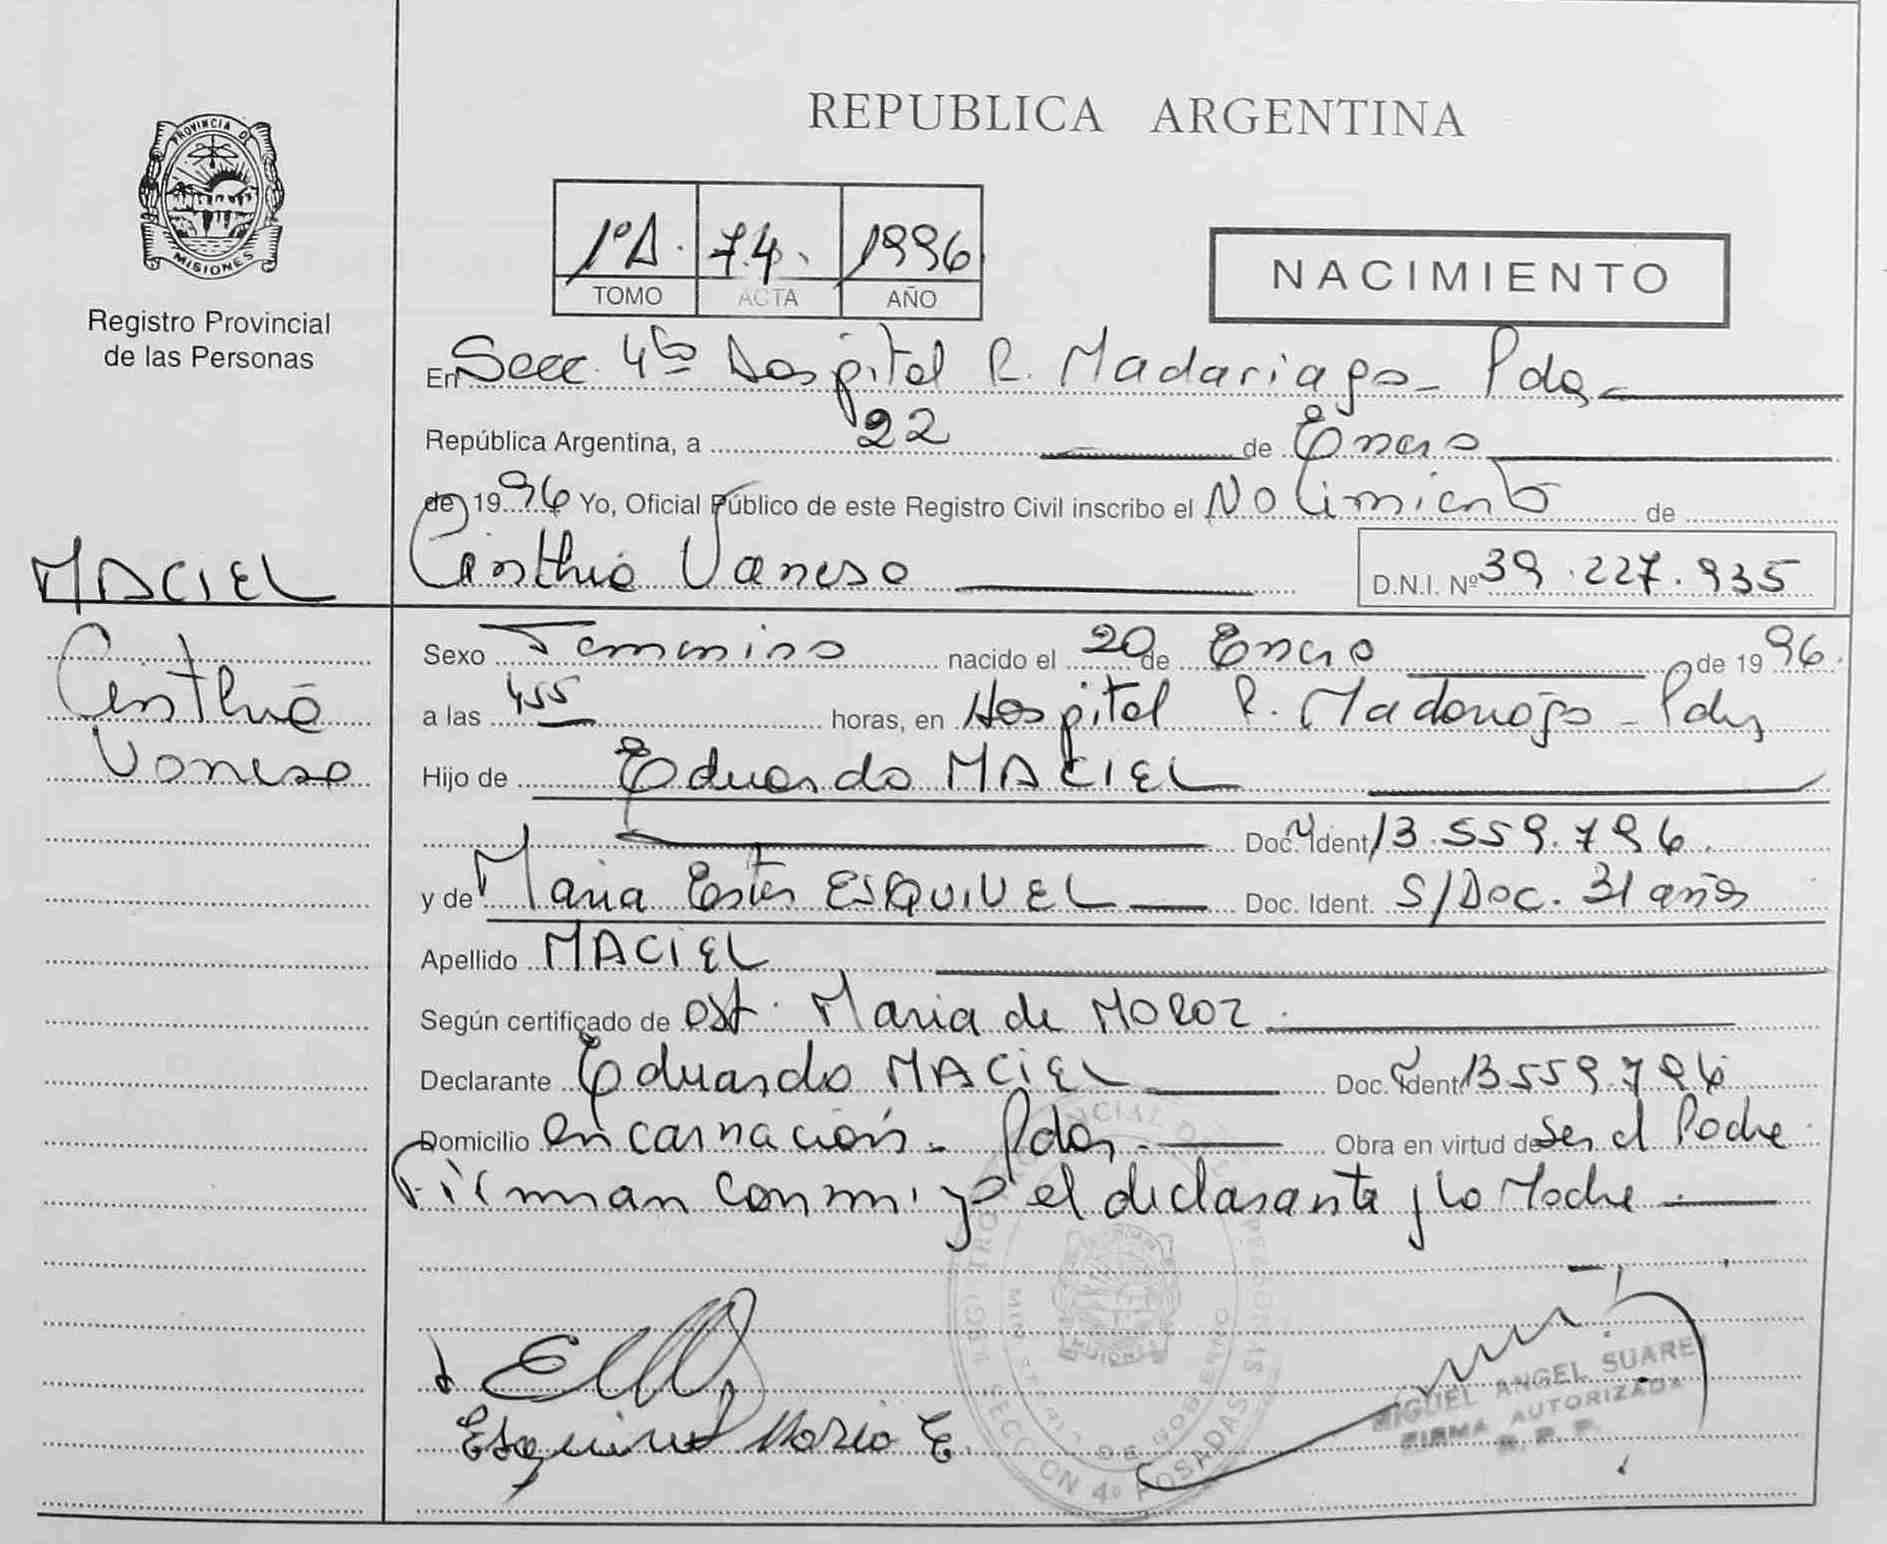 PROVINCIA DE
MISIONES
Registro Provincial
de las Personas
MACIEL
Cinthia
Vanesa
REPUBLICA ARGENTINA
1ºA. 74. 1996
TOMO ACTA AÑO
NACIMIENTO
En Secc. 4ta Hospital R. Madariaga - Pdas
República Argentina, a 22 de Enero
de 1996 Yo, Oficial Público de este Registro Civil inscribo el Nacimiento de
Cinthia Vanesa D.N.I. Nº 39.227.935
Sexo Femenino nacido el 20 de Enero de 1996.
a las 455 horas, en Hospital R. Madariaga - Pdas
Hijo de Eduardo MACIEL
Doc. Ident 13.559.796.
y de Maria Ester ESQUIVEL Doc. Ident. S/Doc. 31 años
Apellido MACIEL
Según certificado de obst. Maria de MOROZ
Declarante Eduardo MACIEL Doc. Ident 13559796
Domicilio encarnación - Pdas. Obra en virtud de ser el Padre.
Firman conmigo el declarante y la Madre.
Esquivel Maria E.
MIGUEL ANGEL SUARE
FIRMA AUTORIZADA
R. P. P.
SECCION 4º POSADAS